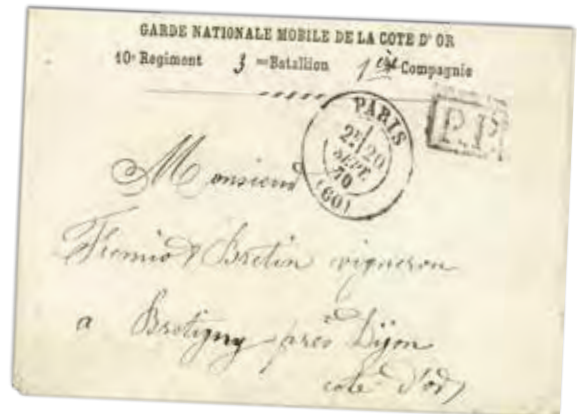 GARDE NATIONALE MOBILE DE LA COTE D'OR
10e Regiment 3 me Batallion 1ère Compagnie
PARIS
2E 20
SEPT.
70
(60)
P.P.
Monsieur
Bretin vigneron
a Bretigny près Dijon
cote d'or